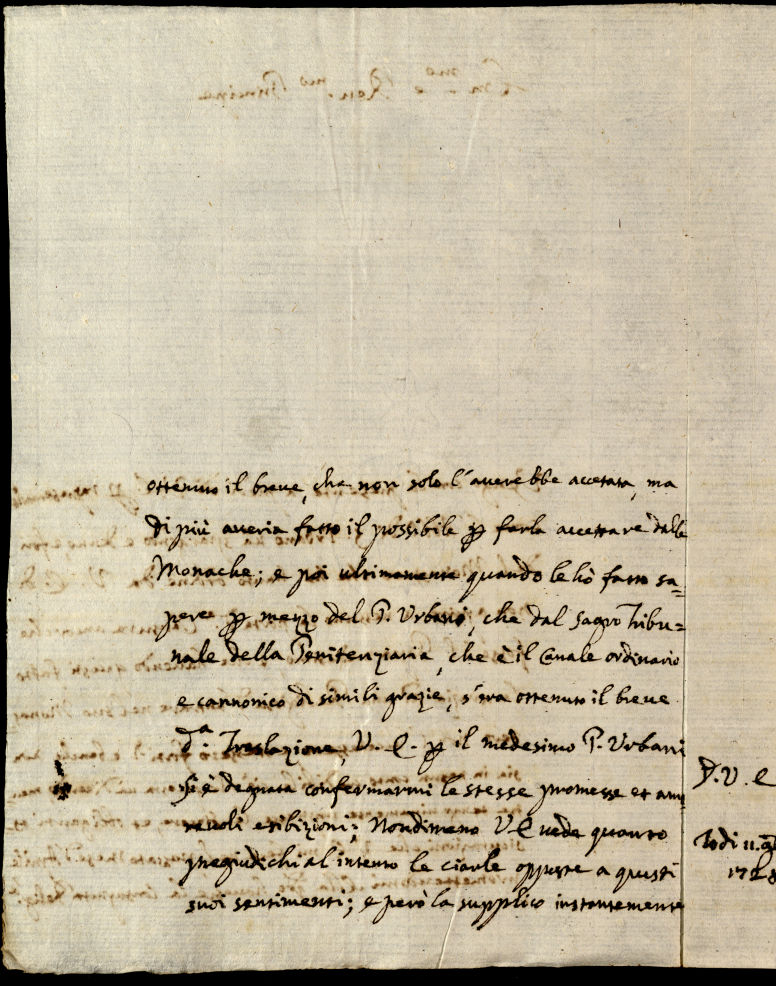 ottenuto il breve, che non solo l'averebbe accettata, ma
di più averia fatto il possibile p farla accettare dalle
Monache; e poi ultimamente quando le hò fatto sa=
pere p mezzo del P. Urbani, che dal Sagro Tribu=
nale della Penitenziaria, che è il Canale ordinario
e cannonico di simili grazie, s'era ottenuto il breve
d.a Traslazione, V. E. p il medesimo P. Urbani
si è degnata confermarmi le stesse promesse et amo
revoli esibizioni; Nondimeno V E vede quanto
pregiudichi al intento le ciarle opposte a questi
suoi sentimenti; e però la supplico instantemente
D. V. E
Todi 11